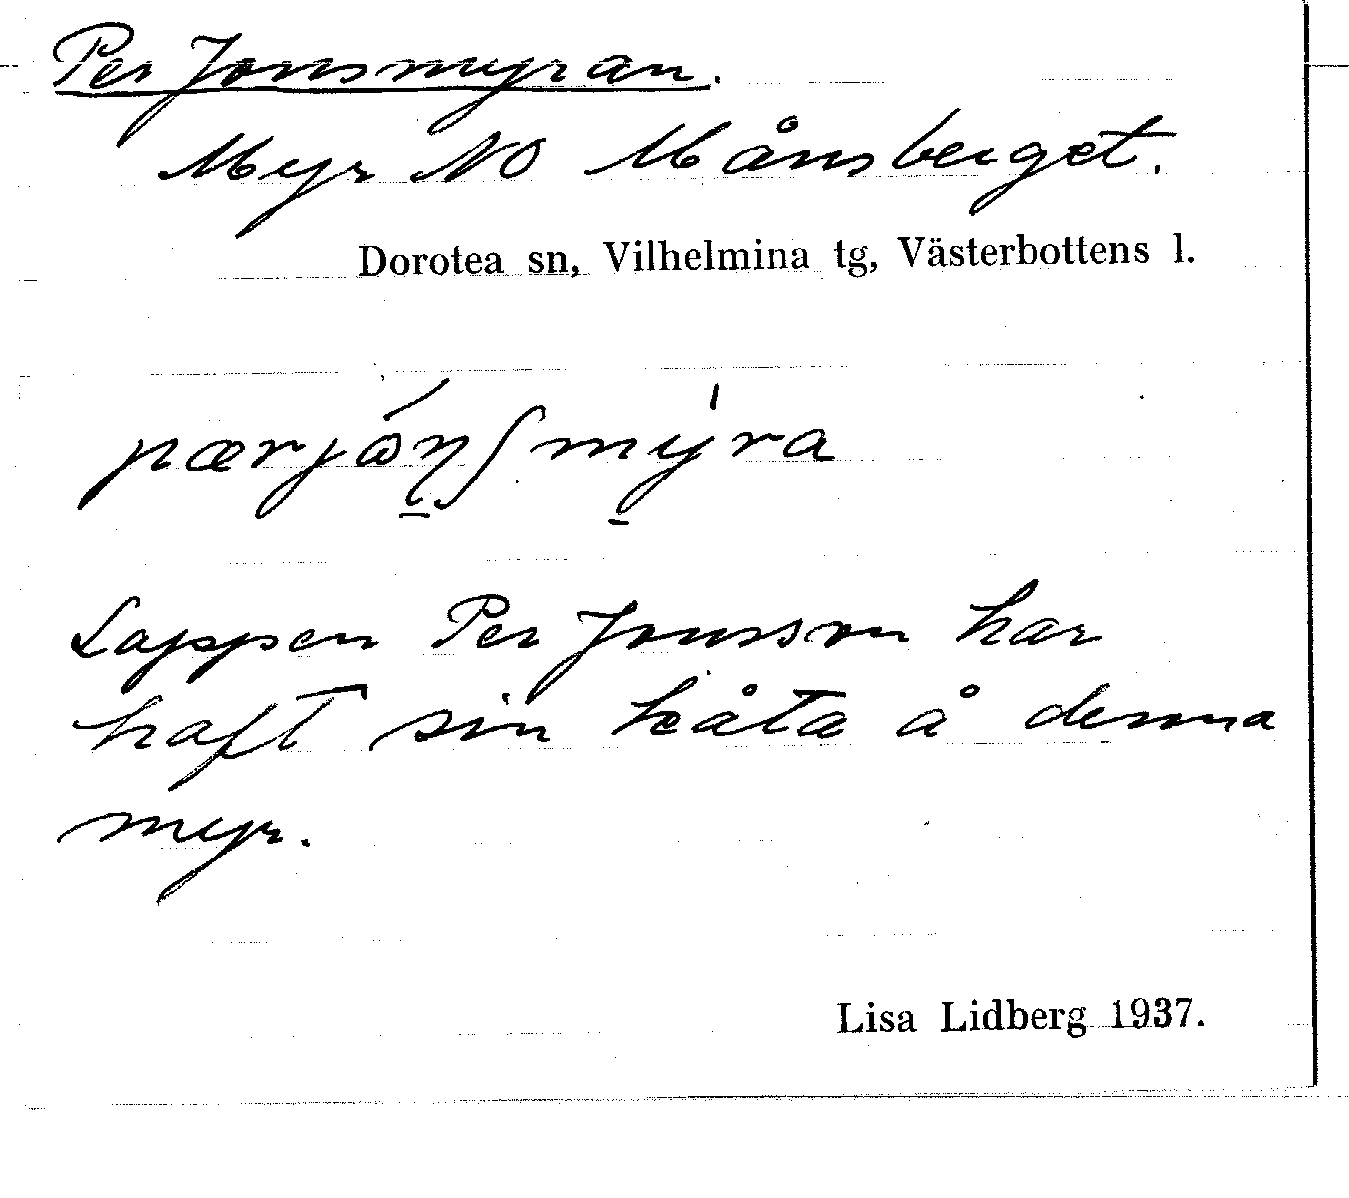 Per Jonsmyran.
Myr NO Månsberget.
Dorotea sn, Vilhelmina tg, Västerbottens l.
Lappen Per Jonsson har
haft sin kåta å denna
myr.
Lisa Lidberg 1937.